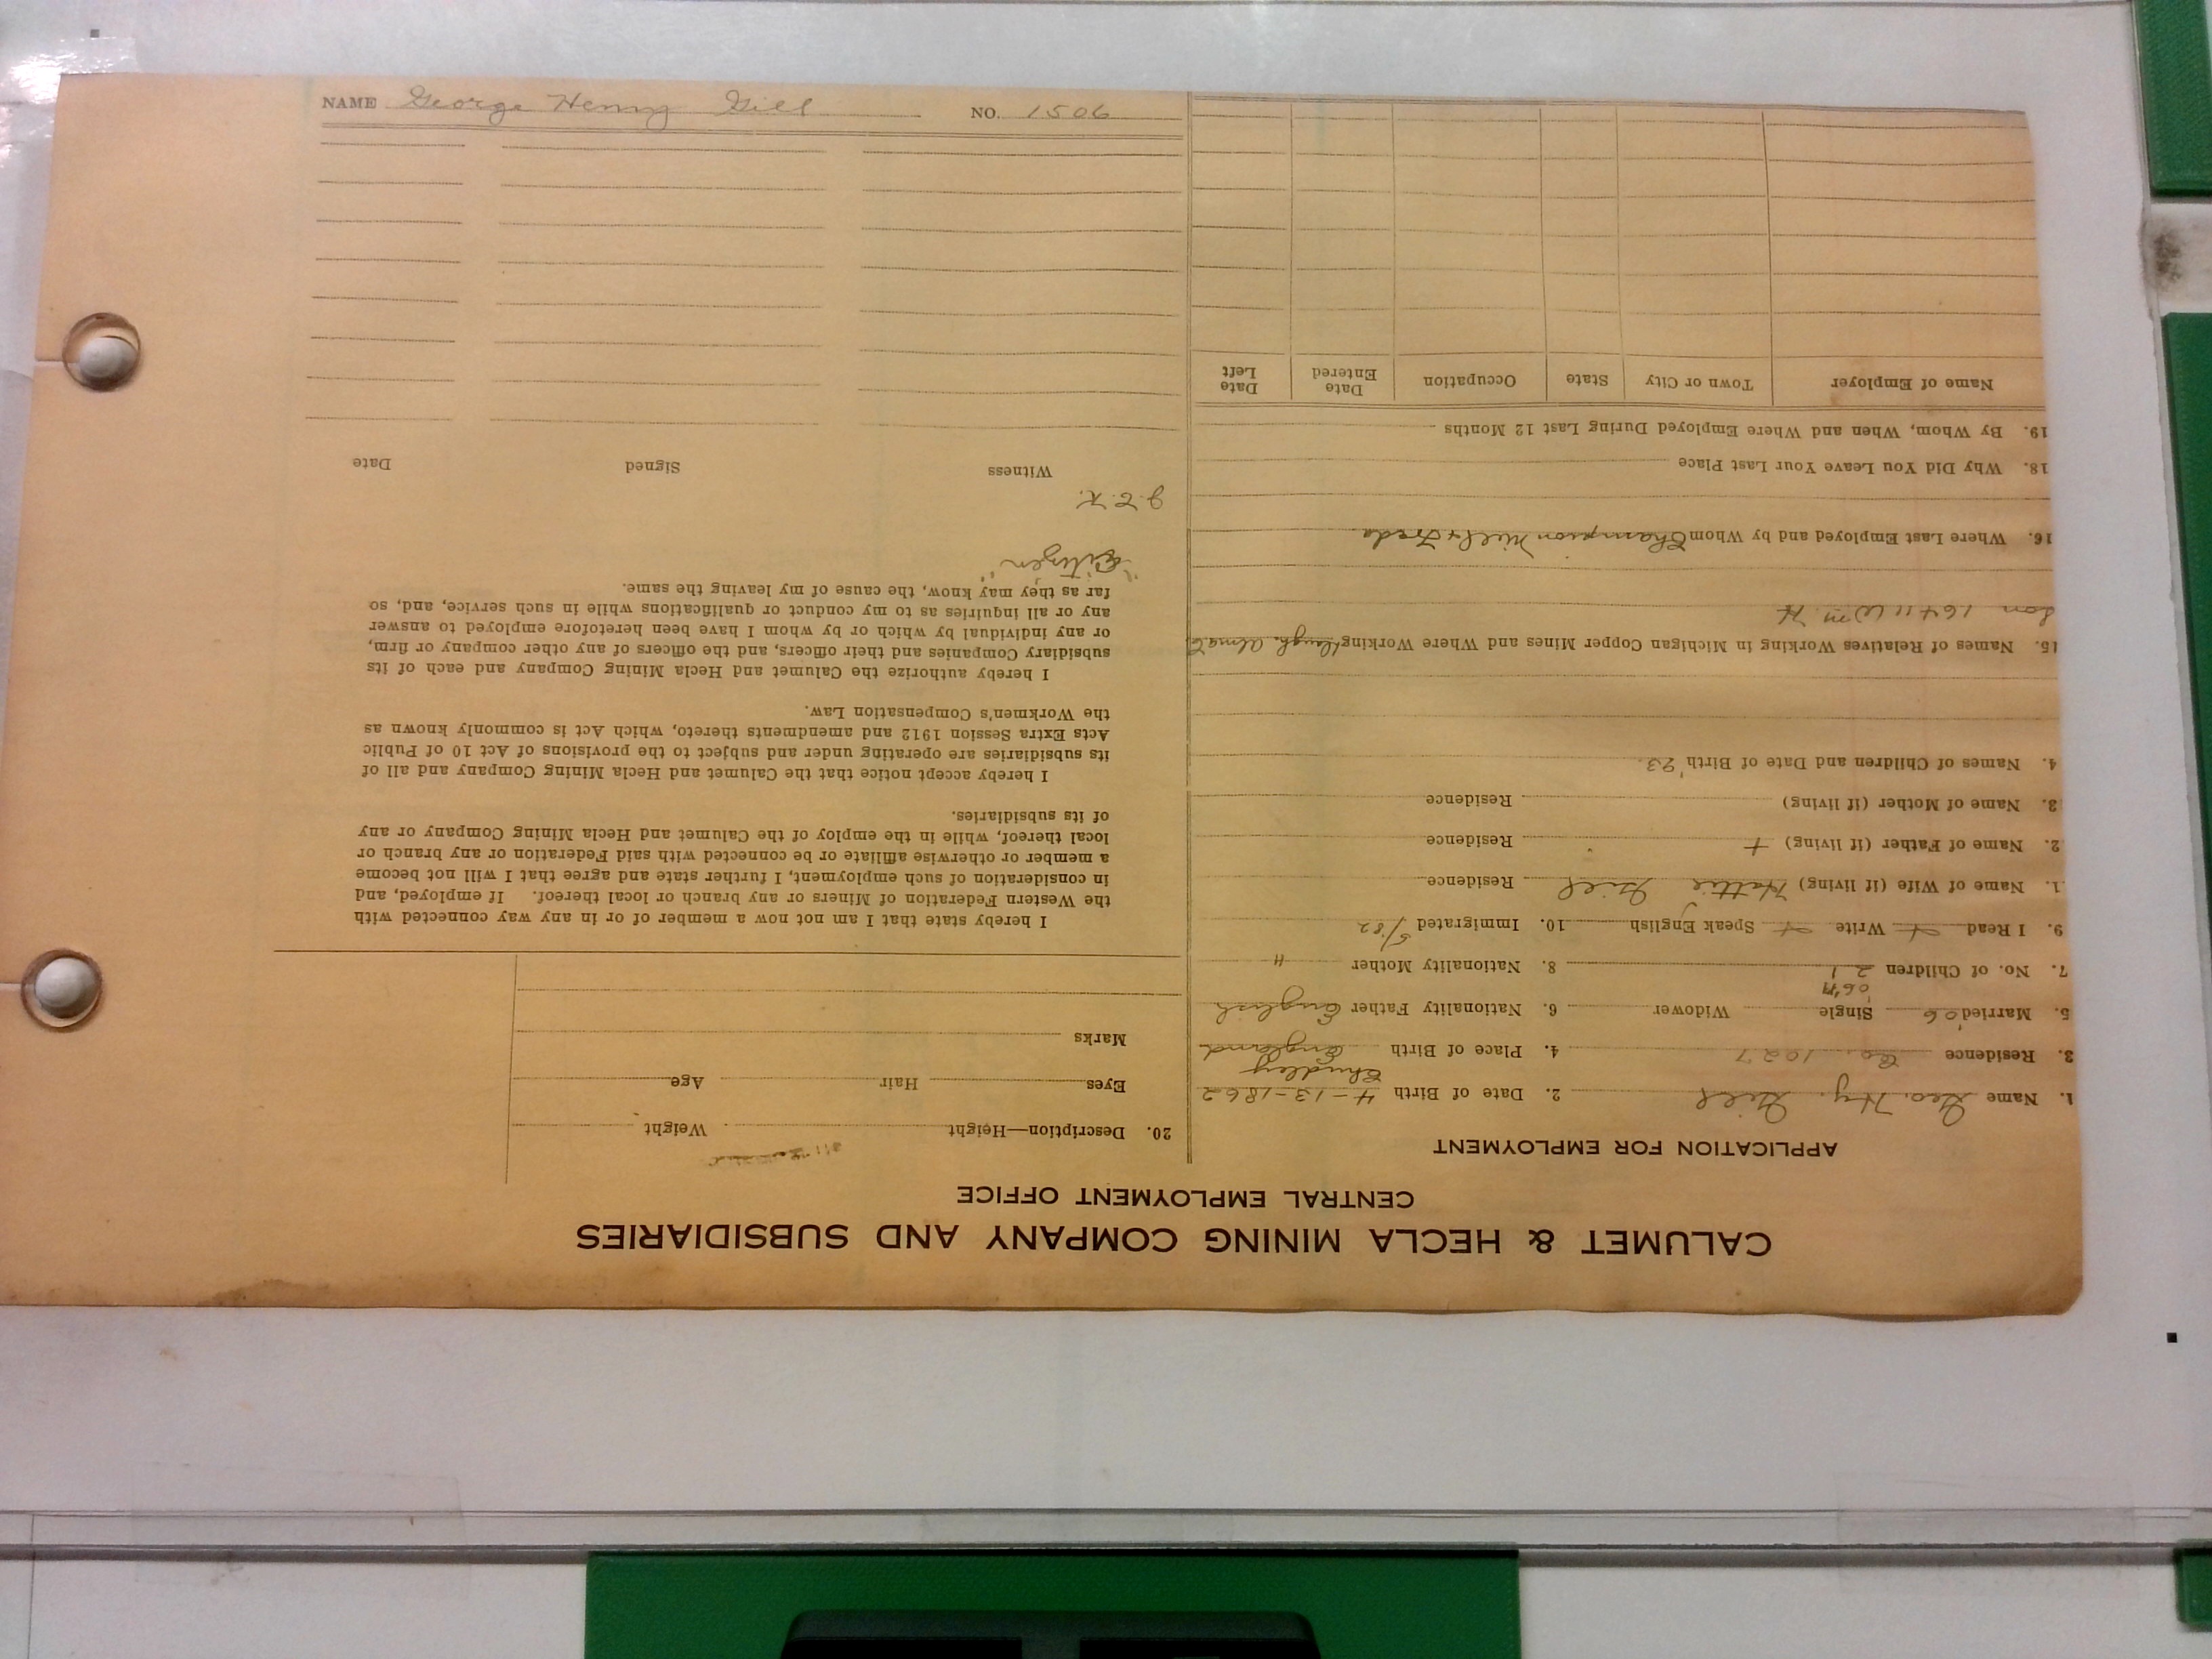 CALUMET & HECLA MINING COMPANY AND SUBSIDIARIES
CENTRAL EMPLOYMENT OFFICE
APPLICATION FOR EMPLOYMENT
1. Name Geo. Hy. Gill 2. Date of Birth 4-13-1862
Chudley
3. Residence Co. 1027 4. Place of Birth England
5. Married '06 Single Widower 6. Nationality Father English
7. No. of Children 2 1 8. Nationality Mother "
9. I Read + Write + Speak English 10. Immigrated 5/82
1. Name of Wife (if living) Hattie Gill Residence
2. Name of Father (if living) + Residence
3. Name of Mother (if living) Residence
4. Names of Children and Date of Birth '23.
15. Names of Relatives Working in Michigan Copper Mines and Where Working Daugh. Alma
Son 16411 Wm H
16. Where Last Employed and by Whom Champion Mill + Freda
18. Why Did You Leave Your Last Place
19. By Whom, When and Where Employed During Last 12 Months
Name of Employer Town or City State Occupation Date Entered Date Left
20. Description—Height Weight
Eyes Hair Age
Marks
I hereby state that I am not now a member of or in any way connected with
the Western Federation of Miners or any branch or local thereof. If employed, and
in consideration of such employment, I further state and agree that I will not become
a member or otherwise affiliate or be connected with said Federation or any branch or
local thereof, while in the employ of the Calumet and Hecla Mining Company or any
of its subsidiaries.
I hereby accept notice that the Calumet and Hecla Mining Company and all of
its subsidiaries are operating under and subject to the provisions of Act 10 of Public
Acts Extra Session 1912 and amendments thereto, which Act is commonly known as
the Workmen's Compensation Law.
I hereby authorize the Calumet and Hecla Mining Company and each of its
subsidiary Companies and their officers, and the officers of any other company or firm,
or any individual by which or by whom I have been heretofore employed to answer
any or all inquiries as to my conduct or qualifications while in such service, and, so
far as they may know, the cause of my leaving the same.
"Citizen"
J. E. K.
Witness Signed Date
NAME George Henry Gill NO. 1506